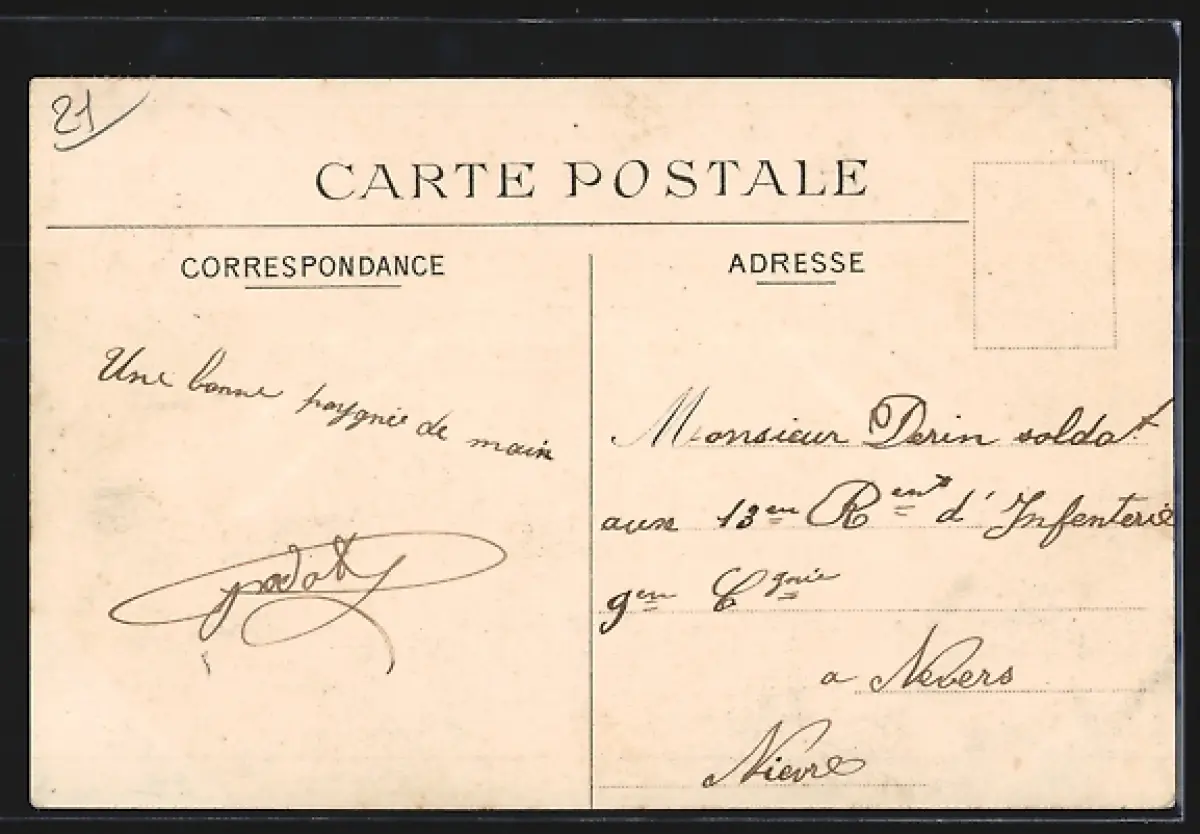 21
CARTE POSTALE
CORRESPONDANCE
ADRESSE
Une bonne poygnie de main
Monsieur Perin soldat
aux 13em Rent d'Infenterie
9em Cgnie
a Nevers
Nievre